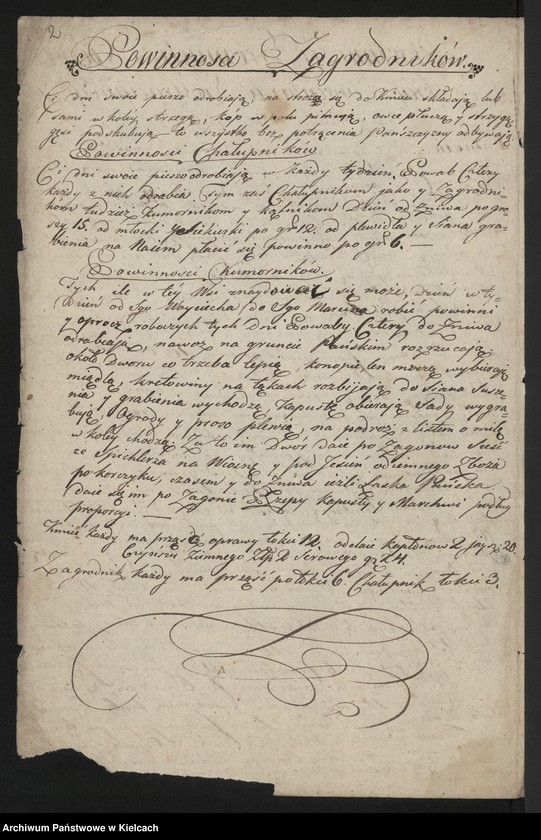 2
Powinnosci Zagrodników.
Ci dni swoie pieszo odrabiaią, na stróżą się do Kmiec składaią lub
sami w koley strzegą, kop w polu pilnuią, owce pluczą y strzygą
gęsi podskubuią to wszystko bez potrącenia Pańszczyzny odbywaią
Powinnosci Chałupników
Ci dni swoie pieszo odrabiaią w każdy tydzien, Powab Cztery
każdy z nich odrabia. Tym zaś Chałupnikom jako y Zagrodni-
kom tudziesz Kumornikom y kątnikom Dzień od Żniwa po gro-
szy 15. od młocki y Siekierki po gr 12. od plewidła y Siana gra-
bienia na Naiem płacić się powinno po gr 6. —
Powinnosci Kumorników.
Tych ile w tey Wsi znaydować się może, Dzień w ty-
dzień od Sgo Woyciecha do Sgo Marcina robić powinni
y oprocz roboczych tych Dni Powaby Cztery do Żniwa
odrabiaią, nawoz na gruncie Pańskim rozrzucaią,
około Dworu co trzeba lepią, konopie, len moczą wybieraią
miądlą, kretowiny na łąkach rozbijaią do Siana Susze-
nia y grabienia wychodzą, Kapustę obieraią Sady wygra-
buią, Ogrody y proso plewią, na podroż z listem o milę
w koley chodzą. Za to im Dwór daie po Zagonow Sześć
ze Spichlerza na Wiosnę y pod Jesień odziemnego Zboża
po korczyku, czasem y do Żniwa ieżli Łaska Pańska
daie się im po Zagonie Rzepy kapusty y Marchwi podług
proporcyi. —
Kmieć każdy ma prząść oprawy łokci 12. oddaie kapłonow 2. jay 20.
Czynszu Zimnego Złp 2 Serowego gr 24.
Zagrodnik każdy ma prząść po łokci 6. Chałupnik łokci 3.
Archiwum Państwowe w Kielcach